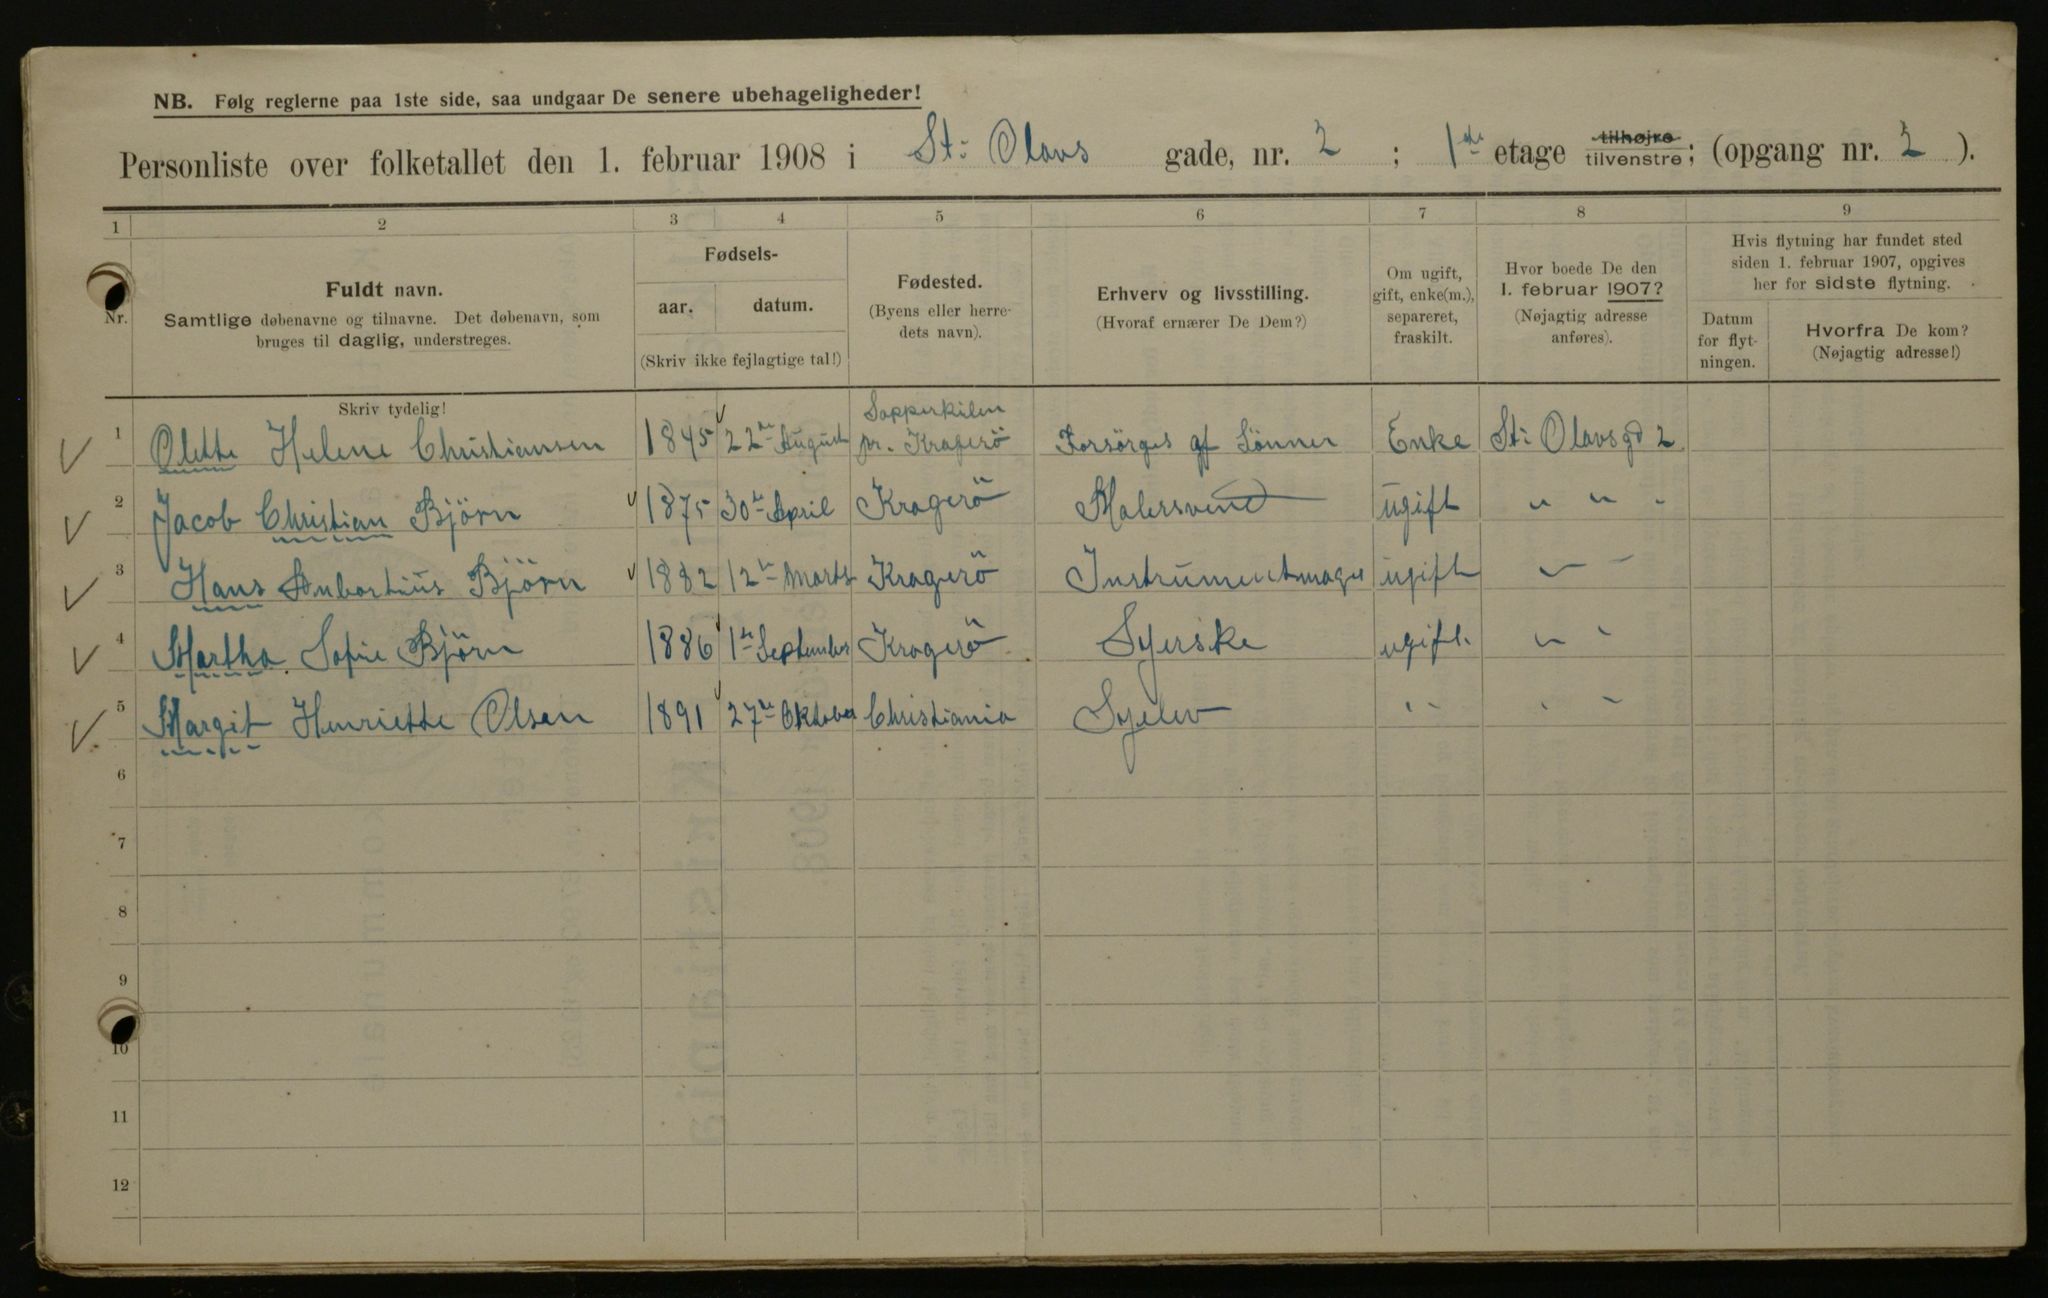 NB. Følg reglerne paa 1ste side, saa undgaar De senere ubehageligheder!
Personliste over folketallet den 1. februar 1908 i St: Olavs gade, nr. 2 ; 1ste etage tilhøjre tilvenstre; (opgang nr. 2 ).
1 2 3 4 5 6 7 8 9
Nr.
Fuldt navn.
Samtlige døbenavne og tilnavne. Det døbenavn, som
bruges til daglig, understreges.
Fødsels-
aar. datum.
(Skriv ikke fejlagtige tal!)
Fødested.
(Byens eller herre-
dets navn).
Erhverv og livsstilling.
(Hvoraf ernærer De Dem?)
Om ugift,
gift, enke(m.),
separeret,
fraskilt.
Hvor boede De den
1. februar 1907?
(Nøjagtig adresse
anføres).
Hvis flytning har fundet sted
siden 1. februar 1907, opgives
her for sidste flytning.
Datum
for flyt-
ningen.
Hvorfra De kom?
(Nøjagtig adresse!)
Skriv tydelig!
1 Olette Helene Christiansen 1845 22de August Sapperkilen pr. Kragerö Forsörges af Sönner Enke St: Olavsgd 2
2 Jacob Christian Björn 1875 30te April Kragerö Malersvend ugift " " "
3 Hans Björn 1882 12te Marts Kragerö Instrumentmager ugift " "
4 Martha Sofie Björn 1886 1te September Kragerö Syerske ugift " "
5 Margit Henriette Olsen 1891 27de Oktober Christiania Syelev " " " "
6
7
8
9
10
11
12